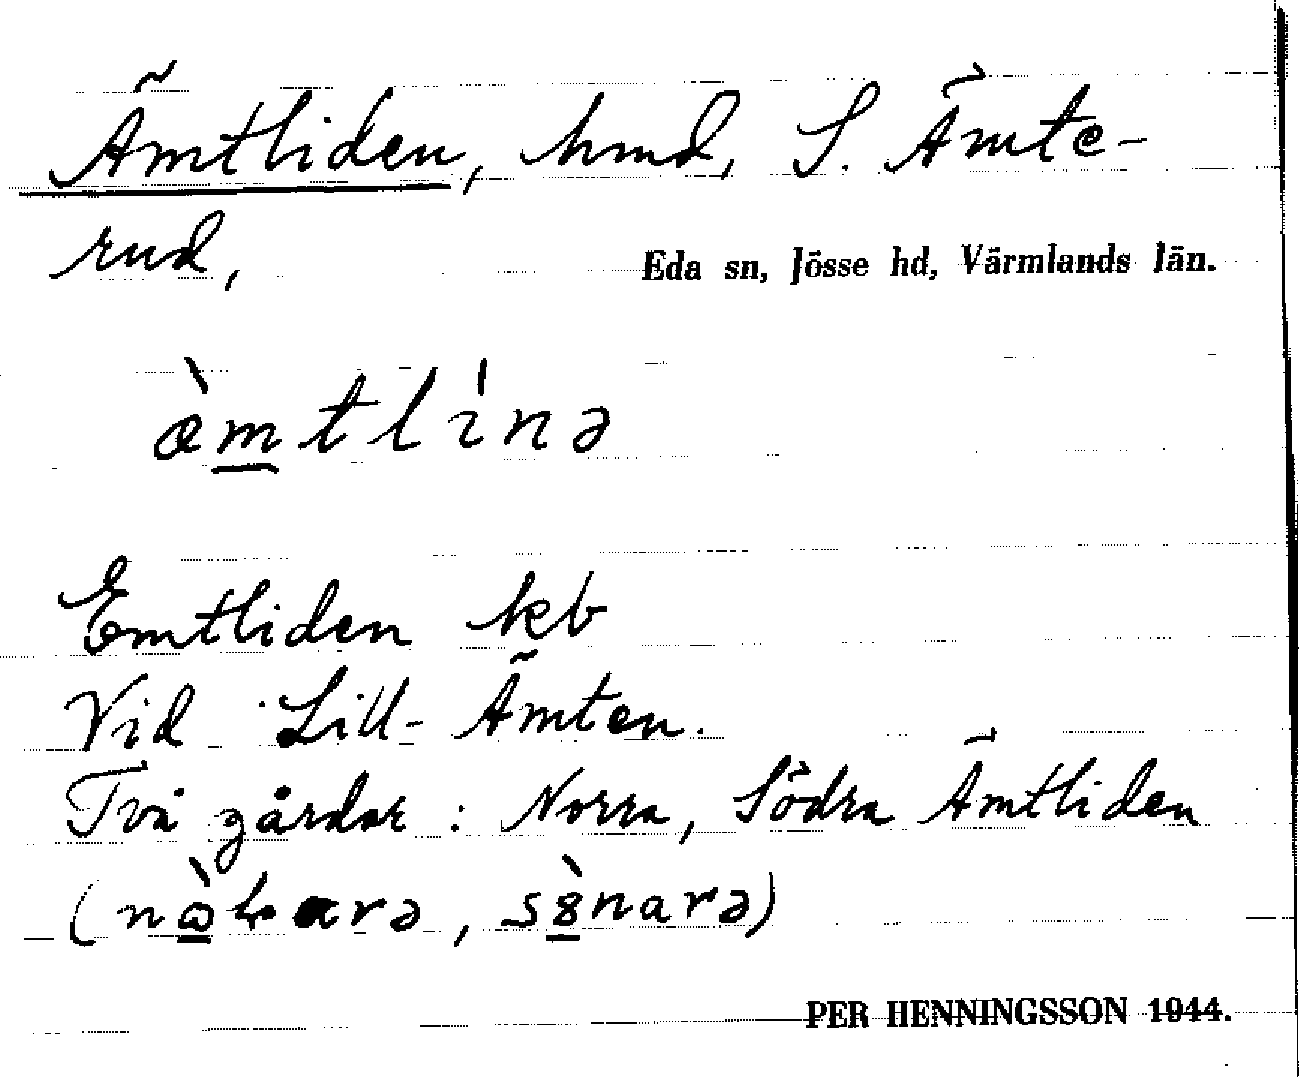 Ämtliden, hmd, S. Ämte-
rud,
Eda sn, Jösse hd, Värmlands län.
æ̀mtlínə
Emtliden kb
Vid Lill-Ämten.
Två gårdar : Norra, Södra Ämtliden
PER HENNINGSSON 1944.